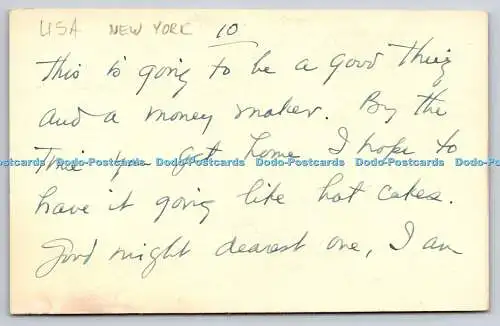 USA NEW YORK 10
This is going to be a good thing
and a money maker. By the
Time you get home I hope to
Dodo-Postcards Dodo-Postcards Dodo-Postcards Dodo-Postcards Dodo-Postcards
have it going like hot cakes.
Good night dearest one, I am